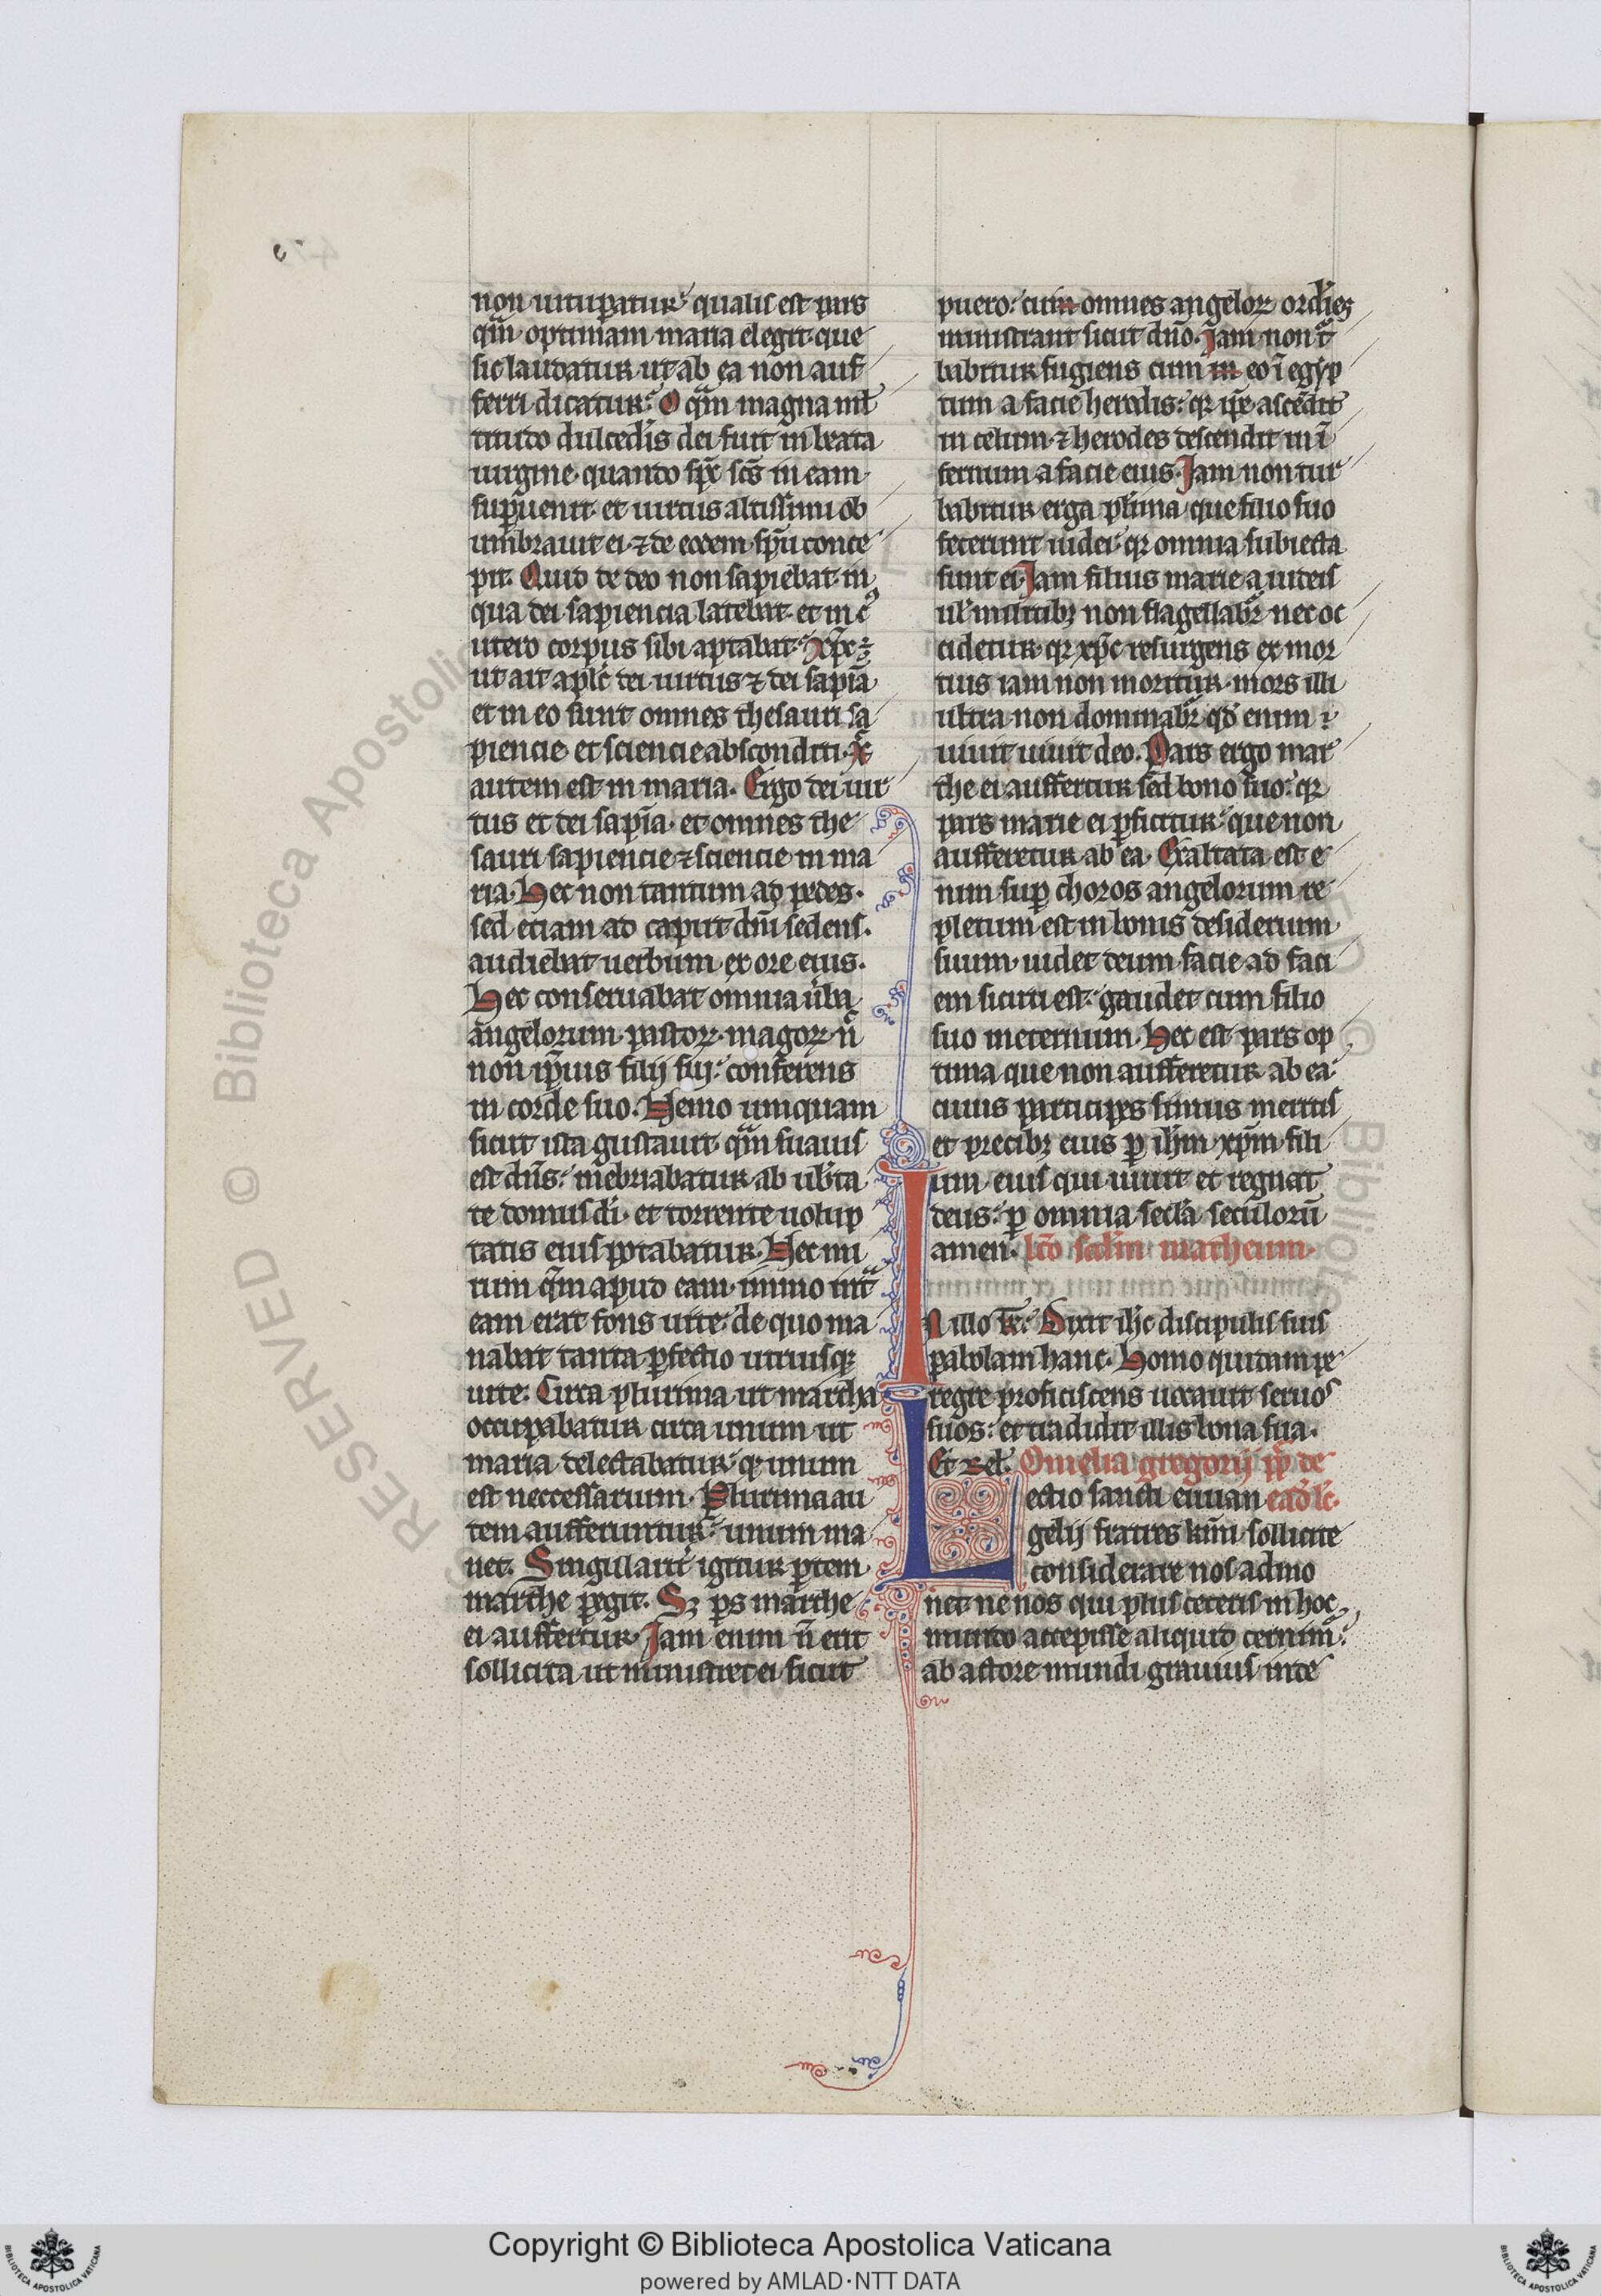 non uitup̄atur. qualis est pars
qm̄ optimam maria elegit. que
sic laudatur ut ab ea non auf
ferri dicatur. O qᵃm magna ml̓
titudo dulcedīs dei fuit in beata
uirgine. quando sp̄c sc̄s in eam
sup̄uenit. et uirtus altissimi ob
umbrauit ei. ⁊ de eodem sp̄u conce
pit. Quid de deo non sapiebat. in
qua dei sapiencia latebat. et in cꝰ
utero corpus sibi aptabat. Xp̄c
ut ait apl̓c dei uirtus ⁊ dei sapīa
et in eo sunt omnes thesauri sa
piencie et sciencie absconditi. xc̄
autem est in maria. Ergo dei uir
tus et dei sapīa. et omnes the
sauri sapiencie ⁊ sciencie in ma
ria. Hec non tantum ad pedes.
sed etiam ad caput dn̄i sedens.
audiebat uerbum ex ore eius.
Hec conseruabat omnia ūba
angelorum. pastorꝝ. magorꝝ.
non ip̄ius filij sui. conferens
in corde suo. Nemo umquam
sicut ista gustauit. qᵃm suauis
est dn̄s. inebriabatur ab ub̓ta
te domus dī. et torrente uolup
tatis eius potabatur. Nec mi
rum qm̄ apud eam. immo intᵃ
eam erat fons uite. de quo ma
nabat tanta ꝑfectio utriusqꝫ
uite. Circa plurima ut martha
occupabatur. circa unum ut
maria delectabatur. qꝛ unum
est neccessarium. Plurima au
tem aufferuntur. unum ma
net. Singularit̓ igitur ꝑtem
marthe pegit. Sꝫ ꝑs marthe
ei auffertur. Jam enim n̄ erit
sollicita ut ministret ei sicut
puero. cum omnes angelorꝝ ordīes
ministrant sicut dn̄o. Jam non tᷣ
babitur fugiens cum in eo ī egyp
tum a facie herodis. qꝛ ip̄e ascēdit
in celum. ⁊ herodes descendit in ī
fernum a facie eius. Jam non tur
babitur erga plīma que filio suo
fecerunt iudei. qꝛ omnia subiecta
sunt ei. Jam filius marie a iudeis
ul̓ militibꝫ non flagellabr̄. nec oc
cidetur. qꝛ xp̄c resurgens ex mor
tuis iam non moritur. mors illi
ultra non dominabr̄. qd̓ enim
uiuit uiuit deo. Pars ergo mar
the ei auffertur sed bono suo. qꝛ
pars marie ei ꝑficitur. que non
aufferetur ab ea. Exaltata est e
nim suꝑ choros angelorum. re
pletum est in bonis desiderium
suum. uidet deum facie ad faci
em sicuti est. gaudet cum filio
suo ineternum. Hec est pars op
tima que non aufferetur ab ea
cuius participes simus meritis
et precibꝫ eius ꝑ ih̄m xp̄m fili
um eius qui uiuit et regnat
deus. ꝑ omnia secl̄a seculorū
amen. Lc̄o scd̓m matheum.
IN illo tꝑ̄. Dixit ih̄c discipulis suis
pabolam hanc. Homo quidam pe
regre proficiscens uocauit seruos
suos. et tradidit illis bona sua.
Et rel̓. Omelia gregorij pp̄ de
Lectio sancti euuan ead̓ lc̄.
gelij fratres kīmi. sollicite
considerare nos admo
net ne nos qui plus ceteris in hoc
mundo accepisse aliquid cernimꝰ.
ab actore mundi grauius inde